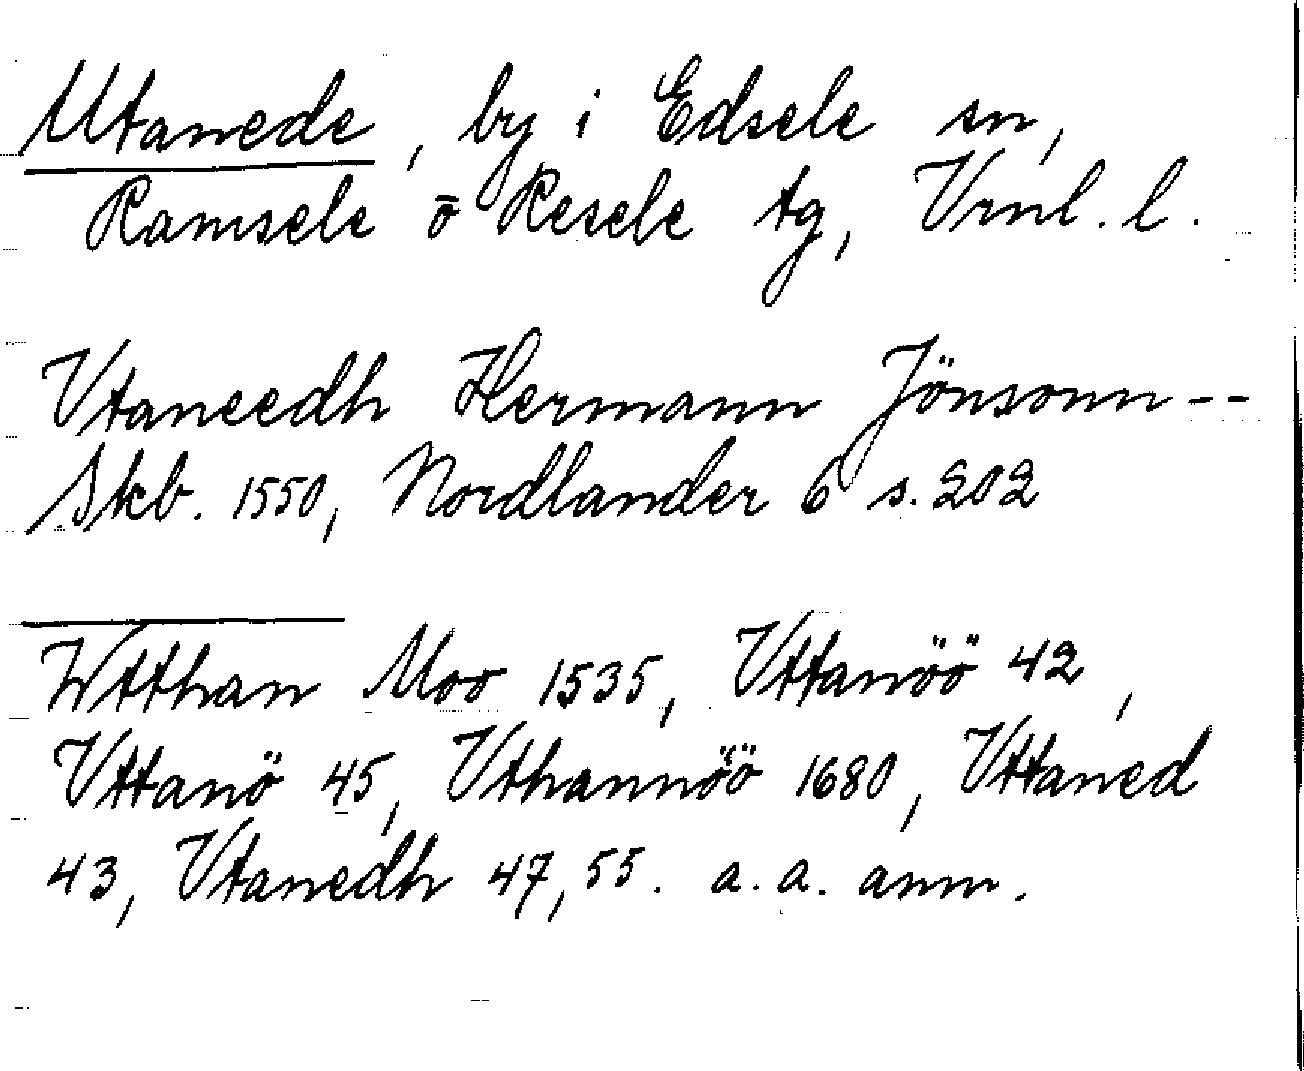 Utanede, by i Edsele sn,
Ramsele o Resele tg, Vrnl. l.
Vtaneedh Hermann Jönsonn --
Skb. 1550, Nordlander 6 s. 202
Wtthan Moo 1535, Vttanöö 42,
Vttanö 45, Vthannöö 1680, Vttaned
43, Vtanedh 47, 55. a. a. anm.